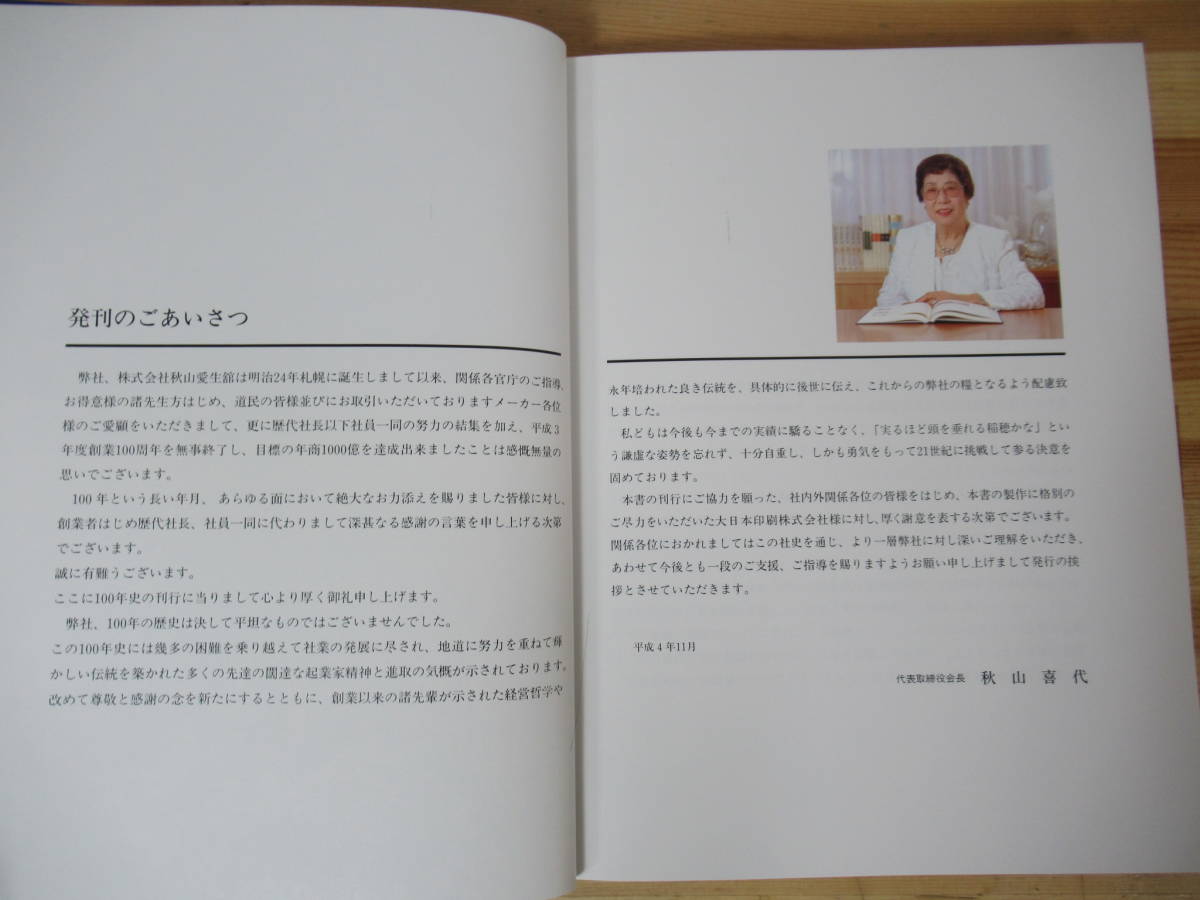 発刊のごあいさつ
弊社、株式会社秋山愛生舘は明治24年札幌に誕生しまして以来、関係各官庁のご指導、
お得意様の諸先生方はじめ、道民の皆様並びにお取引いただいておりますメーカー各位
様のご愛顧をいただきまして、更に歴代社長以下社員一同の努力の結集を加え、平成3
年度創業100周年を無事終了し、目標の年商1000億を達成出来ましたことは感慨無量の
思いでございます。
100年という長い年月、あらゆる面において絶大なお力添えを賜りました皆様に対し、
創業者はじめ歴代社長、社員一同に代わりまして深甚なる感謝の言葉を申し上げる次第
でございます。
誠に有難うございます。
ここに100年史の刊行に当りまして心より厚く御礼申し上げます。
弊社、100年の歴史は決して平坦なものではございませんでした。
この100年史には幾多の困難を乗り越えて社業の発展に尽され、地道に努力を重ねて輝
かしい伝統を築かれた多くの先達の闊達な起業家精神と進取の気概が示されております。
改めて尊敬と感謝の念を新たにするとともに、創業以来の諸先輩が示された経営哲学や
永年培われた良き伝統を、具体的に後世に伝え、これからの弊社の糧となるよう配慮致
しました。
私どもは今後も今までの実績に驕ることなく、「実るほど頭を垂れる稲穂かな」とい
う謙虚な姿勢を忘れず、十分自重し、しかも勇気をもって21世紀に挑戦して参る決意を
固めております。
本書の刊行にご協力を願った、社内外関係各位の皆様をはじめ、本書の製作に格別の
ご尽力をいただいた大日本印刷株式会社様に対し、厚く謝意を表する次第でございます。
関係各位におかれましてはこの社史を通じ、より一層弊社に対し深いご理解をいただき、
あわせて今後とも一段のご支援、ご指導を賜りますようお願い申し上げまして発行の挨
拶とさせていただきます。
平成4年11月
代表取締役会長 秋山喜代